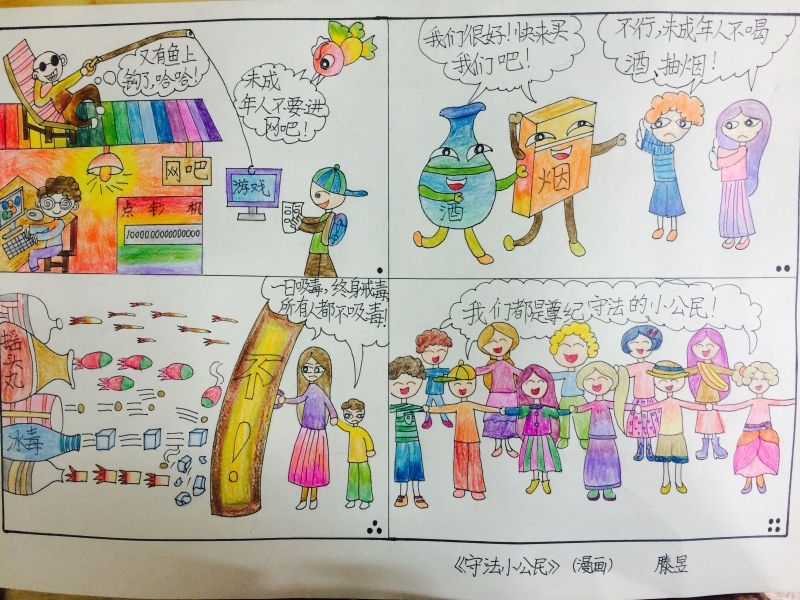 又有鱼上
钩了,哈哈!
未成
年人不要进
网吧!
网吧
游戏
点钞机
10000000000000
我们很好!快来买
我们吧!
不行,未成年人不喝
酒、抽烟!
酒
烟
一日吸毒,终身戒毒,
所有人都不吸毒!
摇头丸
冰毒
不!
我们都是尊纪守法的小公民!
《守法小公民》(漫画) 滕昱